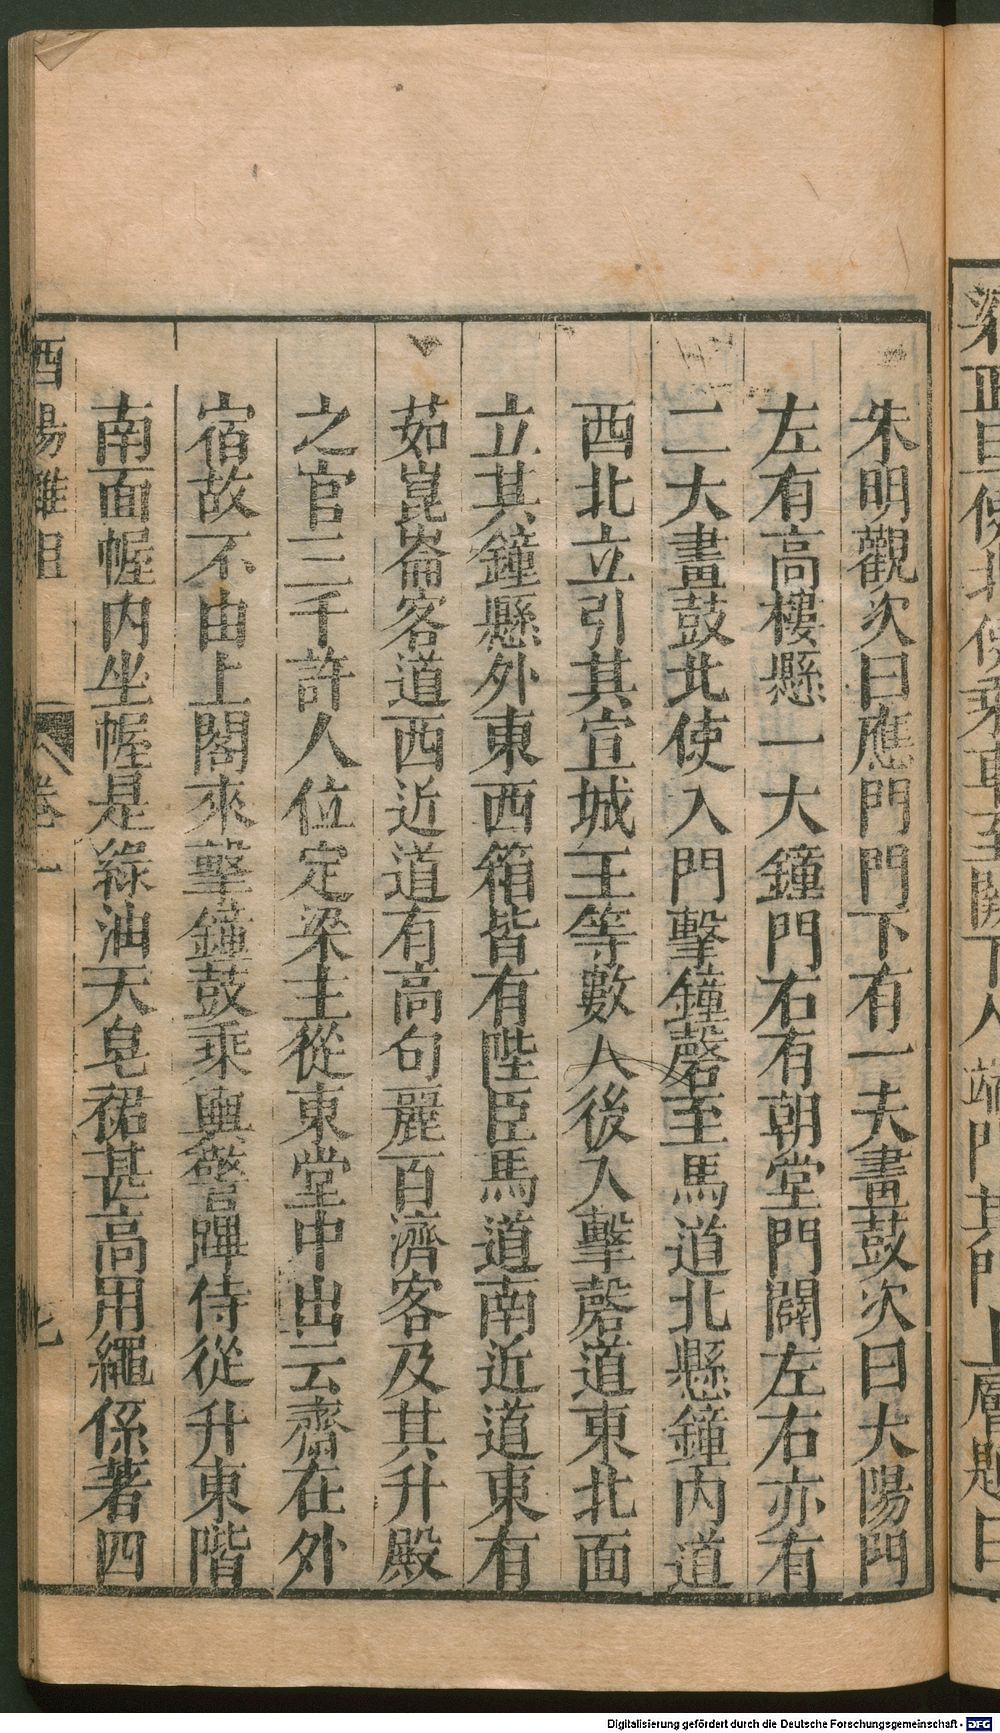 梁正旦使北使乘車至闕下入端門其門上層題曰
朱明觀次曰應門門下有一大畫鼓次曰大陽門
左有高樓懸一大鐘門右有朝堂門闢左右亦有
二大畫鼓北使入門擊鐘磬至馬道北懸鐘內道
西北立引其宣城王等數人後入擊磬道東北面
立其鐘懸外東西箱皆有陛臣馬道南近道東有
茹崑崙客道西近道有高句麗百濟客及其升殿
之官三千許人位定梁主從東堂中出云齋在外
宿故不由上閣來擊鐘鼓乘輿警蹕侍從升東階
南面幄内坐幄是綠油天皂裙甚高用繩係著四
酉陽雜俎 卷一 七
Digitalisierung gefördert durch die Deutsche Forschungsgemeinschaft - DFG